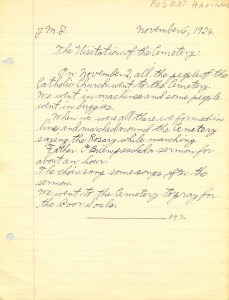 ROBERT
J.M.J. November 6, 1924.
The Visitation of the Cemetery:
On November 2, all the people of the
Catholic Church went to the Cemetery.
We went in machines and some people
went in buggies.
When we were all there, we formed in
line and marched around the Cemetery
saying the Rosary while marching
Father O'Brien preached a sermon for
about an hour.
The choir sang some songs, after the
sermon.
We went to the Cemetery to pray for
the Poor Souls.
89%